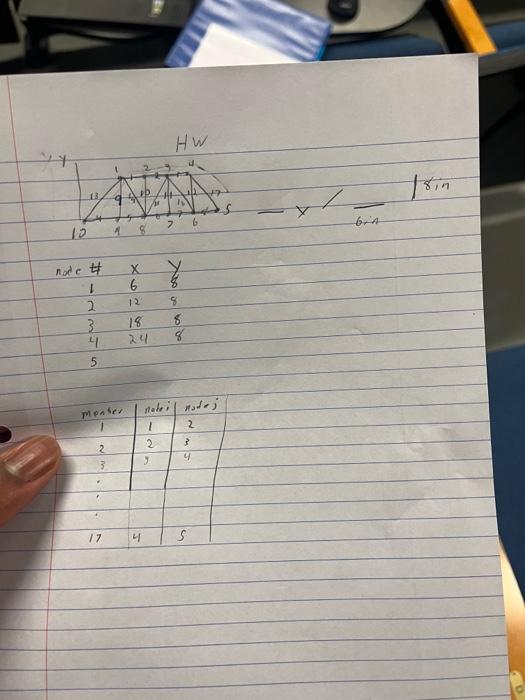 HW
Y
1 2 3 4
13
5
10 9 8 7 6
x
6in
8in
node # x y
1 6 8
2 12 8
3 18 8
4 24 8
5
member node i node j
1 1 2
2 2 3
3 3 4
.
.
.
17 4 5